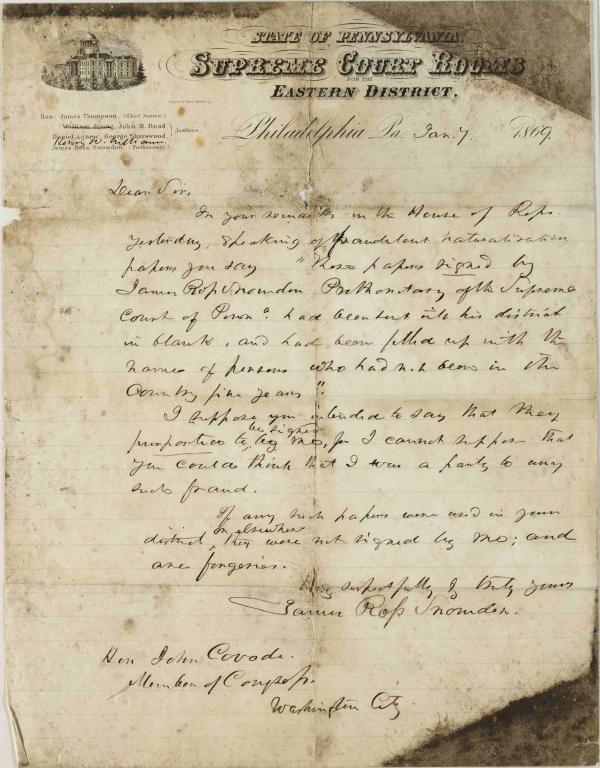 STATE OF PENNSYLVANIA.
SUPREME COURT ROOMS
FOR THE
EASTERN DISTRICT.
Hon. James Thompson, (Chief Justice.)
William Strong, John M. Read
Daniel Agnew, George Sharswood
Justices.
Henry W. Williams
James Ross Snowden (Prothonotary.)
Philadelphia Pa Jan. 7. 1869
Dear Sir,
In your remarks in the House of Reps.
yesterday, speaking of fraudulent naturalisation
papers you say "These papers signed by
James Ross Snowden Prothonotary of the Supreme
Court of Penna. had been sent into his district
in blank, and had been filled up with the
names of persons who had not been in the
Country five years".
I suppose you intended to say that they
be signed
purported to by me, for I cannot suppose that
you could think that I was a party to any
such fraud.
If any such papers were used in your
or elsewhere
district, they were not signed by me; and
are forgeries.
Very respectfully & truly yours
James Ross Snowden.
Hon John Covode.
Member of Congress.
Washington City